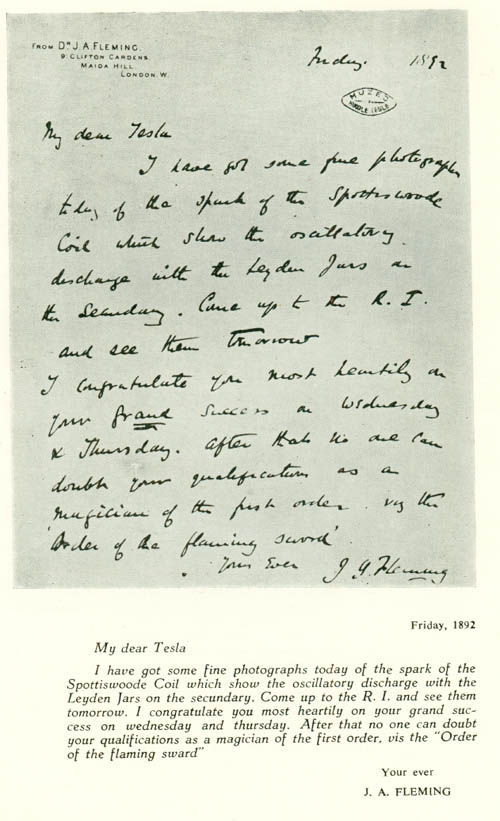 FROM DR J. A. FLEMING.
9 CLIFTON GARDENS
MAIDA HILL
LONDON. W.
Friday. 1892
MUZEJ
NIKOLE TESLE
My dear Tesla
I have got some fine photographs
today of the spark of the Spottiswoode
Coil which show the oscillatory
discharge with the Leyden Jars on
the Secondary. Come up to the R. I.
and see them tomorrow
I congratulate you most heartily on
your grand success on Wednesday
& Thursday. After that no one can
doubt your qualifications as a
magician of the first order. viz the
'Order of the flaming sword'.
Yours Ever J A Fleming
Friday, 1892
My dear Tesla
I have got some fine photographs today of the spark of the
Spottiswoode Coil which show the oscillatory discharge with the
Leyden Jars on the secundary. Come up to the R. I. and see them
tomorrow. I congratulate you most heartily on your grand suc-
cess on wednesday and thursday. After that no one can doubt
your qualifications as a magician of the first order, vis the "Order
of the flaming sward"
Your ever
J. A. FLEMING